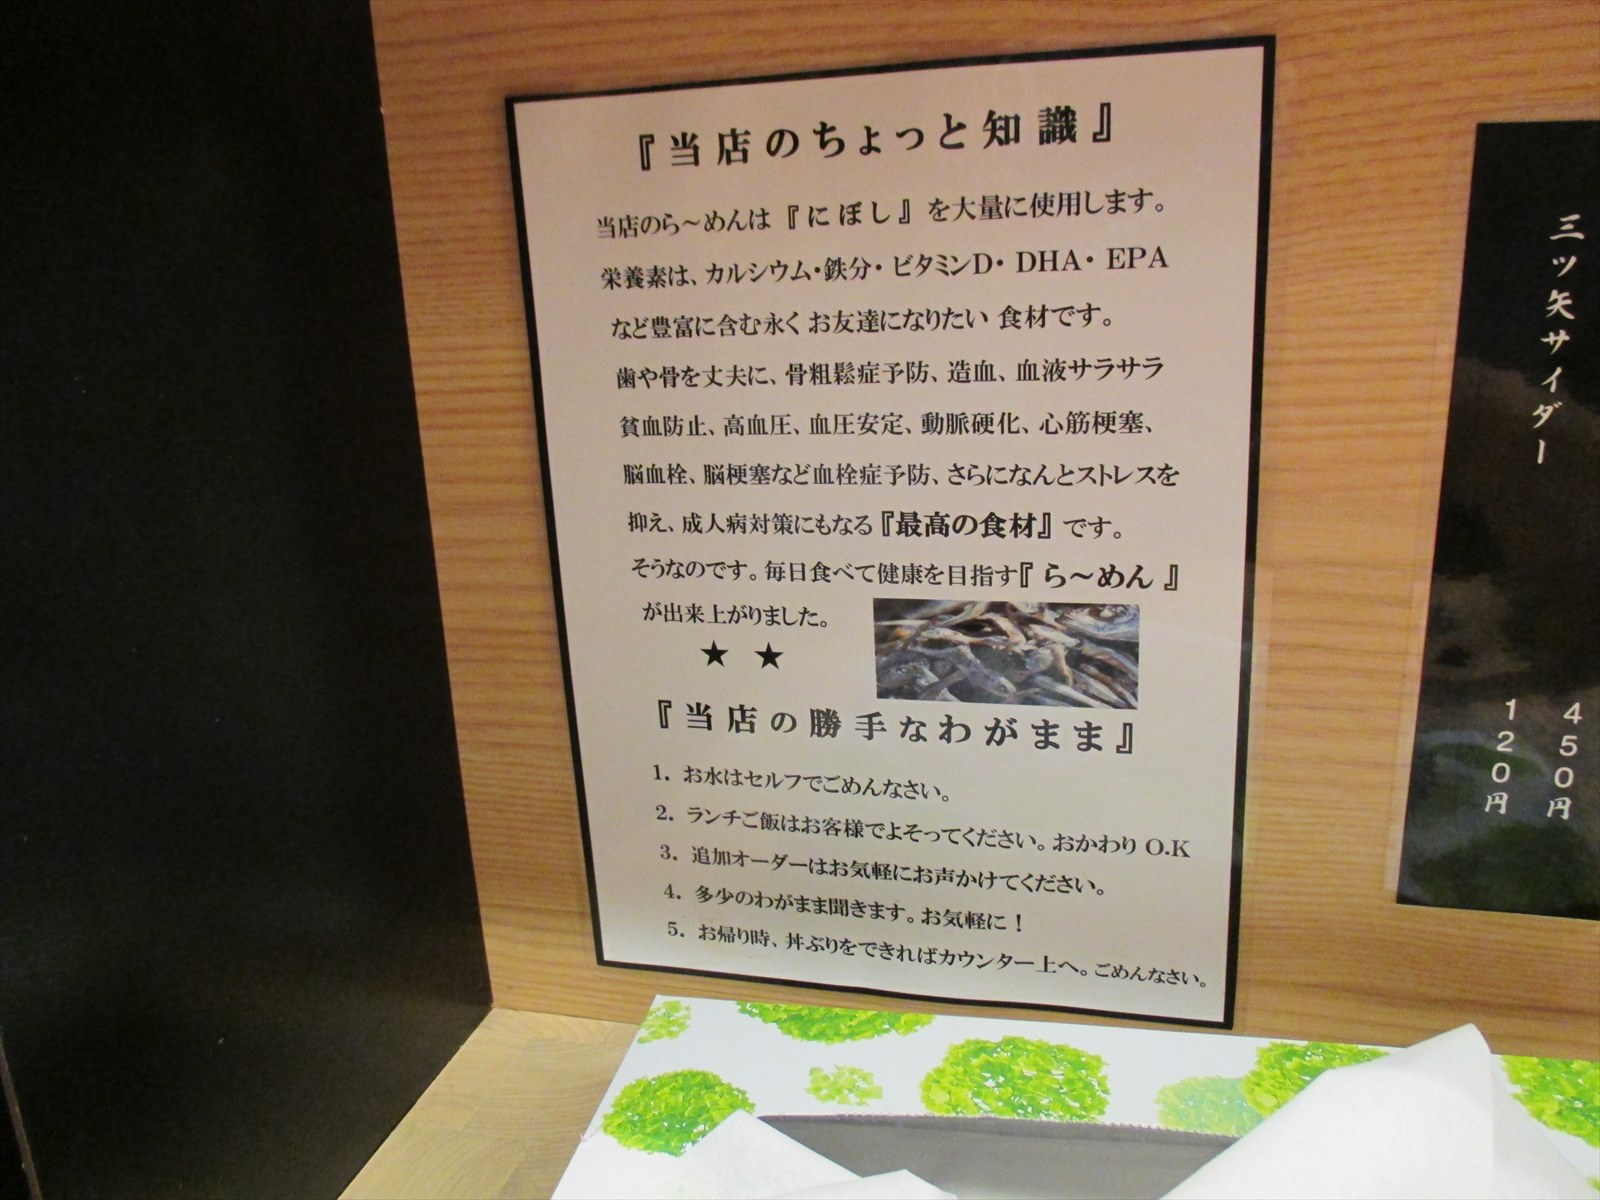 『当店のちょっと知識』
当店のら～めんは『にぼし』を大量に使用します。
栄養素は、カルシウム・鉄分・ビタミンD・DHA・EPA
など豊富に含む永く お友達になりたい 食材です。
歯や骨を丈夫に、骨粗鬆症予防、造血、血液サラサラ
貧血防止、高血圧、血圧安定、動脈硬化、心筋梗塞、
脳血栓、脳梗塞など血栓症予防、さらになんとストレスを
抑え、成人病対策にもなる『最高の食材』です。
そうなのです。毎日食べて健康を目指す『ら～めん』
が出来上がりました。
★ ★
『当店の勝手なわがまま』
1. お水はセルフでごめんなさい。
2. ランチご飯はお客様でよそってください。おかわり O.K
3. 追加オーダーはお気軽にお声かけてください。
4. 多少のわがまま聞きます。お気軽に！
5. お帰り時、丼ぶりをできればカウンター上へ。ごめんなさい。
三ツ矢サイダー
450円
120円